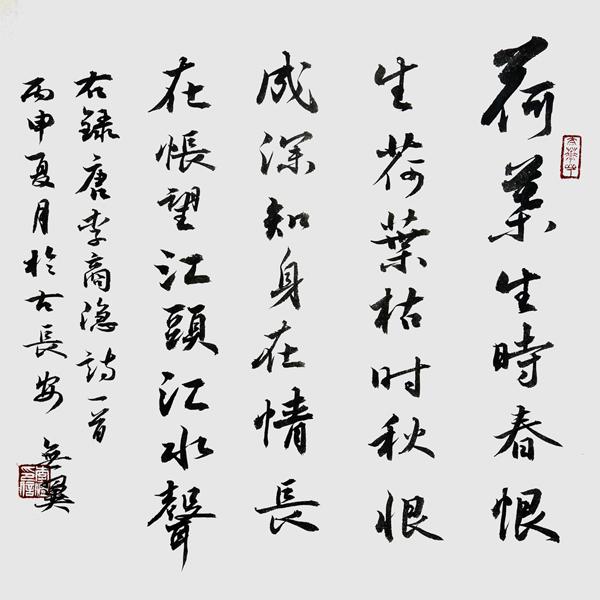 荷葉生時春恨
生荷葉枯时秋恨
成深知身在情長
在悵望江頭江水聲
右録唐李商隐詩一首
丙申夏月於古長安
無翼